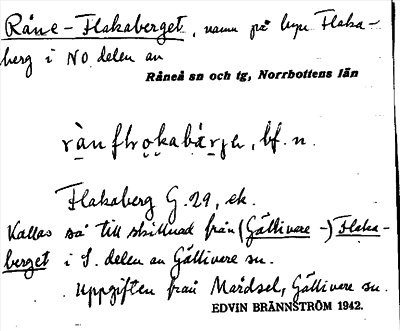 Råne-Flakaberget, namn på byn Flaka-
berg i NO. delen av
Råneå sn och tg, Norrbottens län
bf. n.
Flakaberg G. 29, ek.
Kallas så till skillnad från (Gällivare-) Flaka-
berget i S. delen av Gällivare sn.
Uppgiften från Mårdsel, Gällivare sn.
EDVIN BRÄNNSTRÖM 1942.